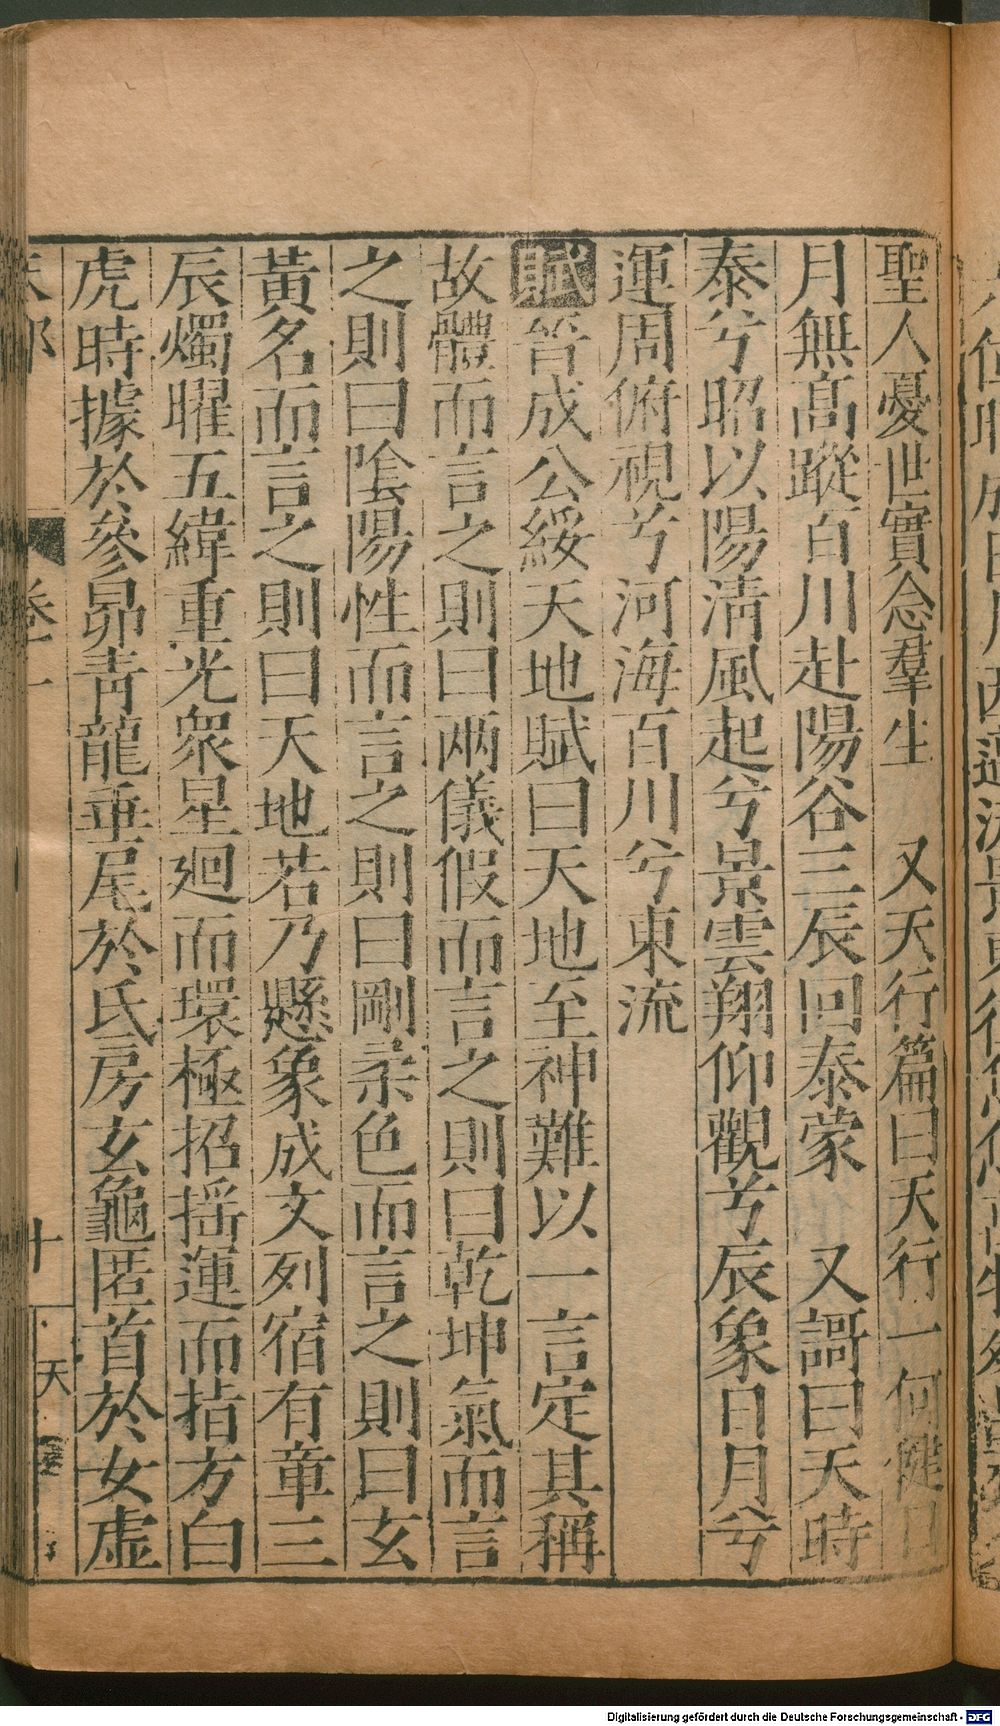 聖人憂世實念羣生　又天行篇曰天行一何健日
月無髙蹤百川赴陽谷三辰回泰蒙　又謌曰天時
泰兮昭以陽清風起兮景雲翔仰觀兮辰象日月兮
運周俯視兮河海百川兮東流
賦晉成公綏天地賦曰天地至神難以一言定其稱
故體而言之則曰兩儀假而言之則曰乾坤氣而言
之則曰陰陽性而言之則曰剛柔色而言之則曰玄
黃名而言之則曰天地若乃懸象成文列宿有章三
辰燭曜五緯重光衆星廻而環極招揺運而指方白
虎時據於參昴青龍垂尾於氐房玄龜匿首於女虛
卷一
十
天
Digitalisierung gefördert durch die Deutsche Forschungsgemeinschaft - DFG